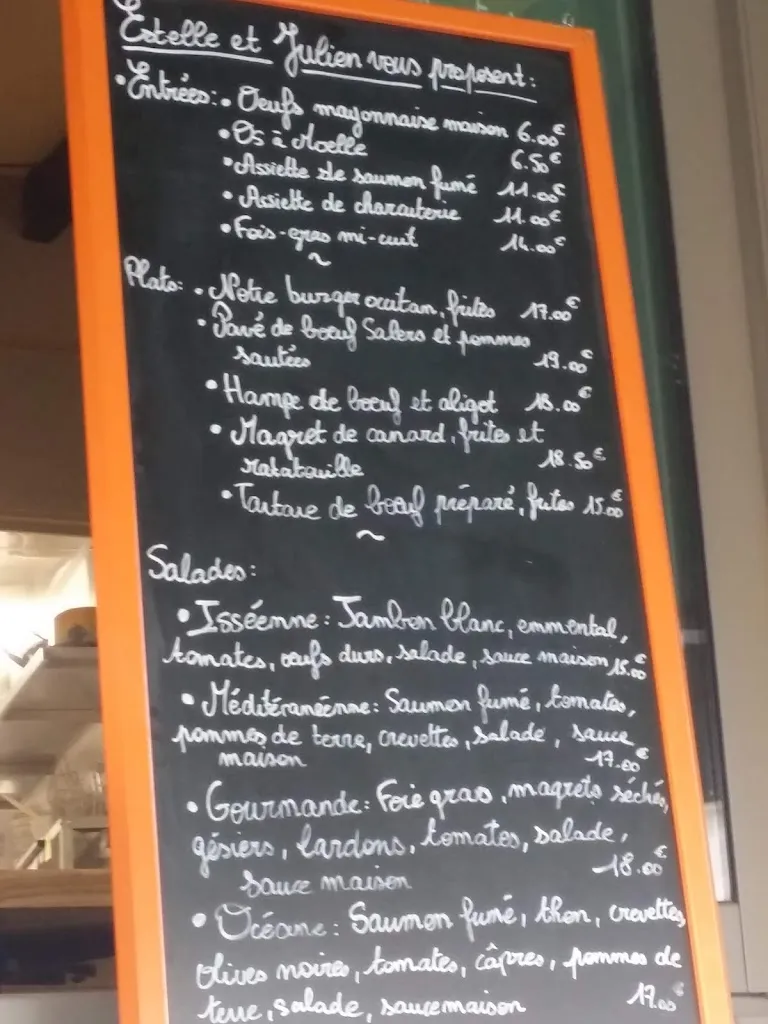 Estelle et Julien vous proposent:
• Entrées: • Oeufs mayonnaise maison 6.00€
• Os à Moelle 6.50€
• Assiette de saumon fumé 11.00€
• Assiette de charcuterie 11.00€
• Fois-gras mi-cuit 14.00€
~
Plats: • Notre burger occitan, frites 17.00€
• Pavé de boeuf Salers et pommes
sautées 19.00€
• Hampe de boeuf et aligot 18.00€
• Magret de canard, frites et
ratatouille 18.50€
• Tartare de boeuf préparé, frites 15.00€
~
Salades:
• Isséenne: Jambon blanc, emmental,
tomates, oeufs durs, salade, sauce maison 15.00€
• Méditéranéenne: Saumon fumé, tomates,
pommes de terre, crevettes, salade, sauce
maison 17.00€
• Gourmande: Foie gras, magrets séchés,
gésiers, lardons, tomates, salade,
sauce maison 18.00€
• Océane: Saumon fumé, thon, crevettes,
olives noires, tomates, câpres, pommes de
terre, salade, sauce maison 17.00€